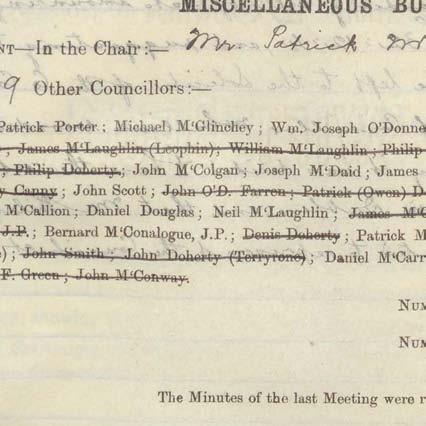 MISCELLANEOUS BU
NT—In the Chair:— Mr. Patrick M
9 Other Councillors:—
Patrick Porter; Michael M'Glinchey; Wm. Joseph O'Donne
; James M'Laughlin (Leophin); William M'Laughlin; Philip
; Philip Doherty; John M'Colgan; Joseph M'Daid; James
y Canny; John Scott; John O'D. Farren; Patrick (Owen) D
M'Callion; Daniel Douglas; Neil M'Laughlin; James M'G
J.P.; Bernard M'Conalogue, J.P.; Denis Doherty; Patrick M
e); John Smith; John Doherty (Terryrone); Daniel M'Carr
F. Green; John M'Conway.
NUM
NUM
The Minutes of the last Meeting were r